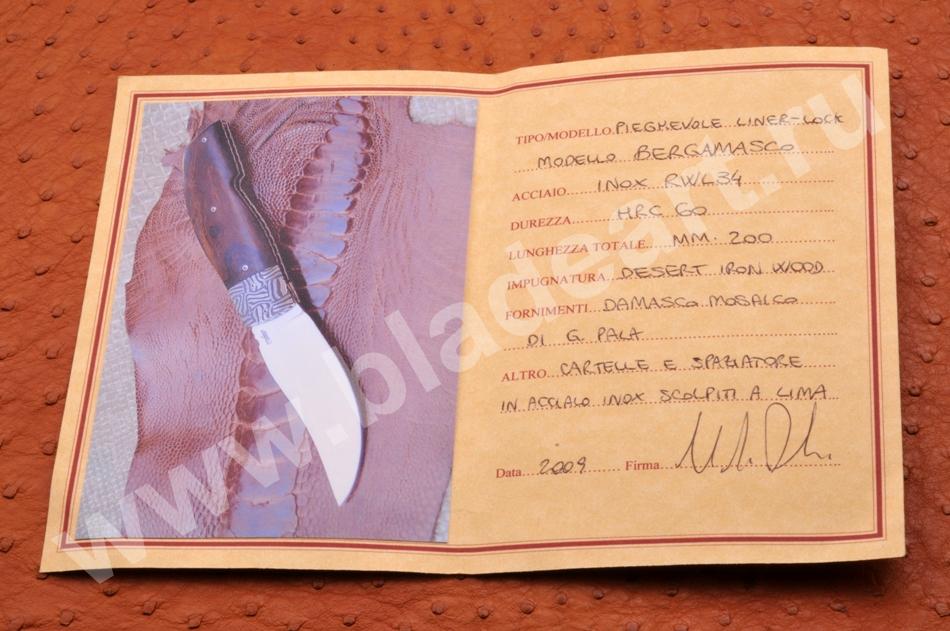 TIPO/MODELLO PIEGHEVOLE LINER-LOCK
MODELLO BERGAMASCO
ACCIAIO INOX RWL34
DUREZZA HRC 60
LUNGHEZZA TOTALE MM. 200
IMPUGNATURA DESERT IRON WOOD
FORNIMENTI DAMASCO MOSAICO
DI G. PALA
ALTRO CARTELLE E SPAZIATORE
IN ACCIAIO INOX SCOLPITI A LIMA
Data 2009 Firma
www.bladeart.ru